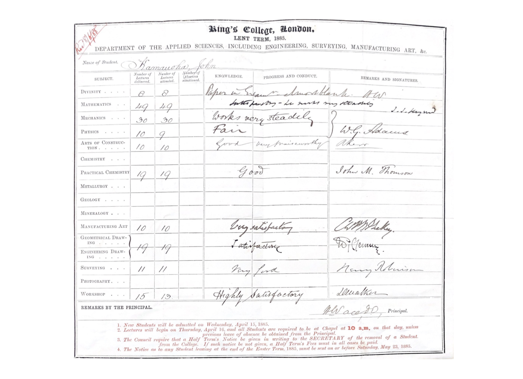 King's College, London.
LENT TERM, 1883.
DEPARTMENT OF THE APPLIED SCIENCES, INCLUDING ENGINEERING, SURVEYING, MANUFACTURING ART, &c.
Name of Student John
SUBJECT. Number of Lectures delivered. Number of Lectures attended. KNOWLEDGE. PROGRESS AND CONDUCT. REMARKS AND SIGNATURE.
DIVINITY 8 8
MATHEMATICS 49 49 Satisfactory
MECHANICS 30 30 Works very steadily
PHYSICS 10 9 Fair W. G. Adams
ARTS OF CONSTRUCTION 10 10 Good
CHEMISTRY
PRACTICAL CHEMISTRY 19 19 Good John M. Thomson
METALLURGY
GEOLOGY
MINERALOGY
MANUFACTURING ART 10 10 Very satisfactory
GEOMETRICAL DRAWING
ENGINEERING DRAWING 19 19 Satisfactory
SURVEYING 11 11 Very good Henry Robinson
PHOTOGRAPHY
WORKSHOP 15 13 Highly Satisfactory
REMARKS BY THE PRINCIPAL. Principal.
1. New Students will be admitted on Wednesday, April 11, 1883.
2. Lectures will begin on Thursday, April 12, and all Students are required to be at Chapel at 10 a.m. on that day, unless
previous leave of absence be obtained from the Principal.
3. The Council require that a Half Term's Notice be given in writing to the SECRETARY of the removal of a Student
from the College. If such notice be not given, a Half Term's Fees must in all cases be paid.
4. The Notice as to any Student leaving at the end of the Easter Term, 1883, must be sent on or before